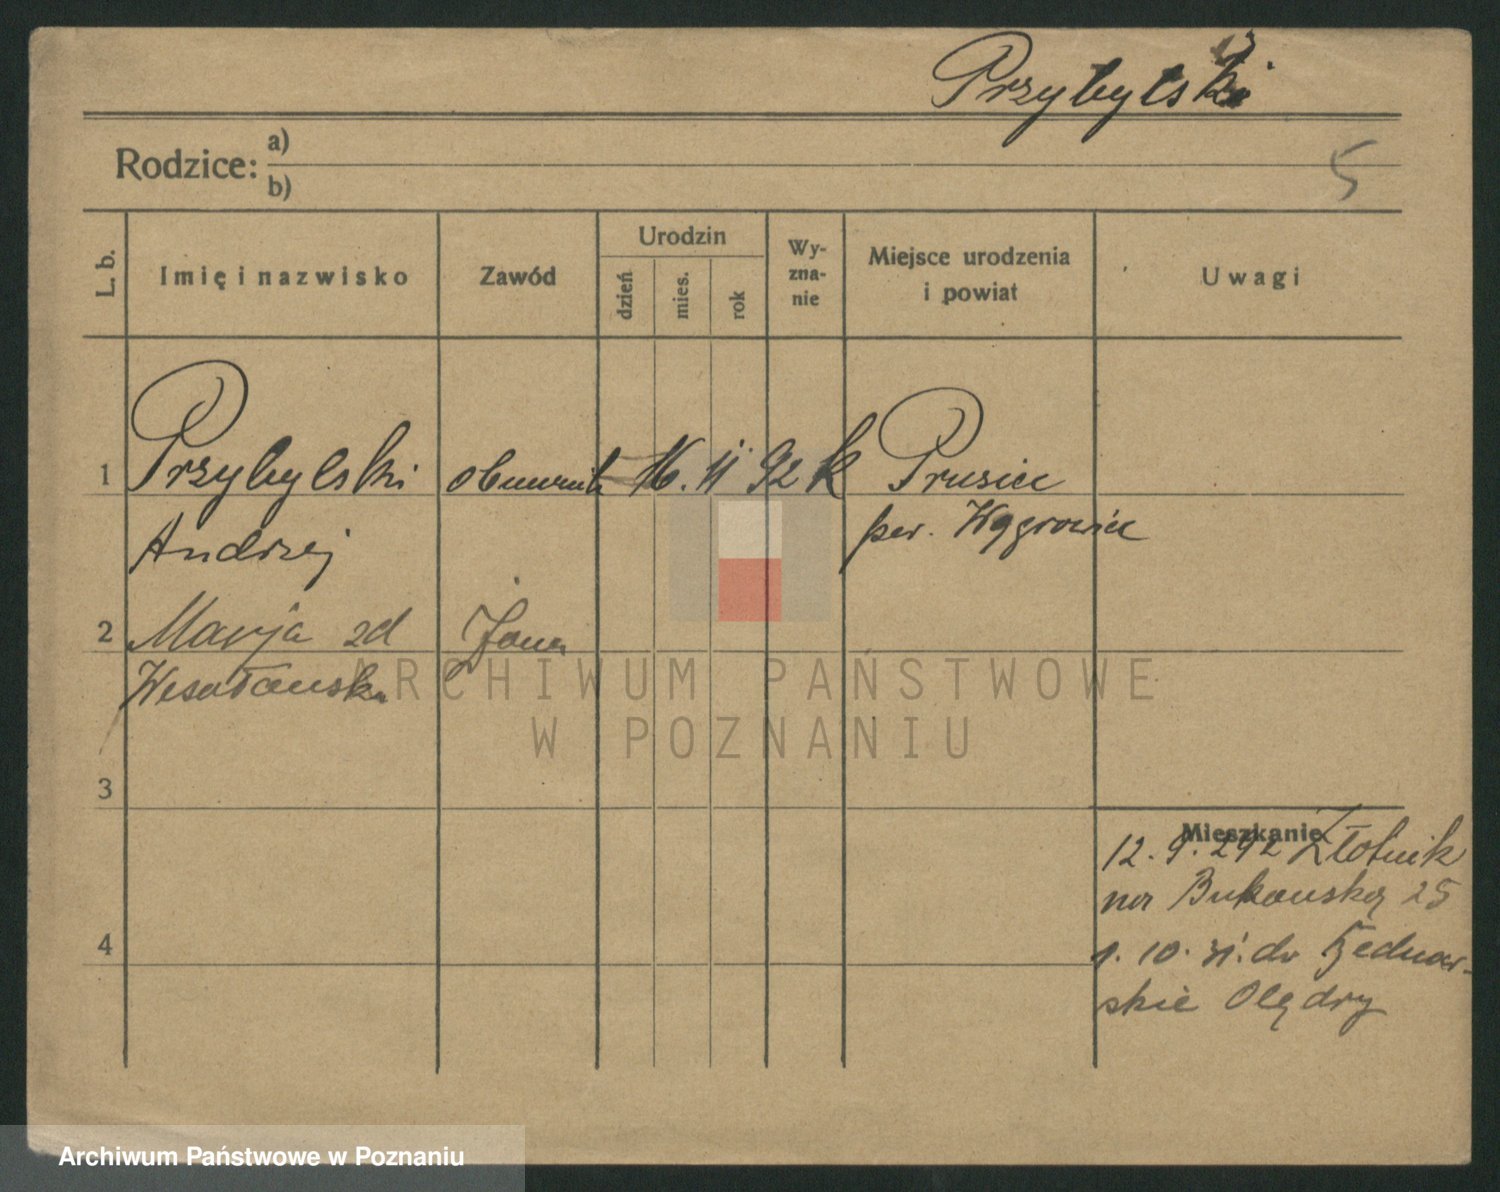 Przybylski
Rodzice:
a)
b)
5
L. b.
Imię i nazwisko
Zawód
Urodzin
dzień
mies.
rok
Wy-
zna-
nie
Miejsce urodzenia
i powiat
Uwagi
1
Przybylski
16. 11 92 k
Prusiec
pow. Wągrowiec
Andrzej
2
Marja zd
żona
ARCHIWUM PAŃSTWOWE
W POZNANIU
3
Mieszkanie
12. 9. Złotnik
na Bukowską 25
4
1. 10. 31. do Bednar-
skie Olędry
Archiwum Państwowe w Poznaniu